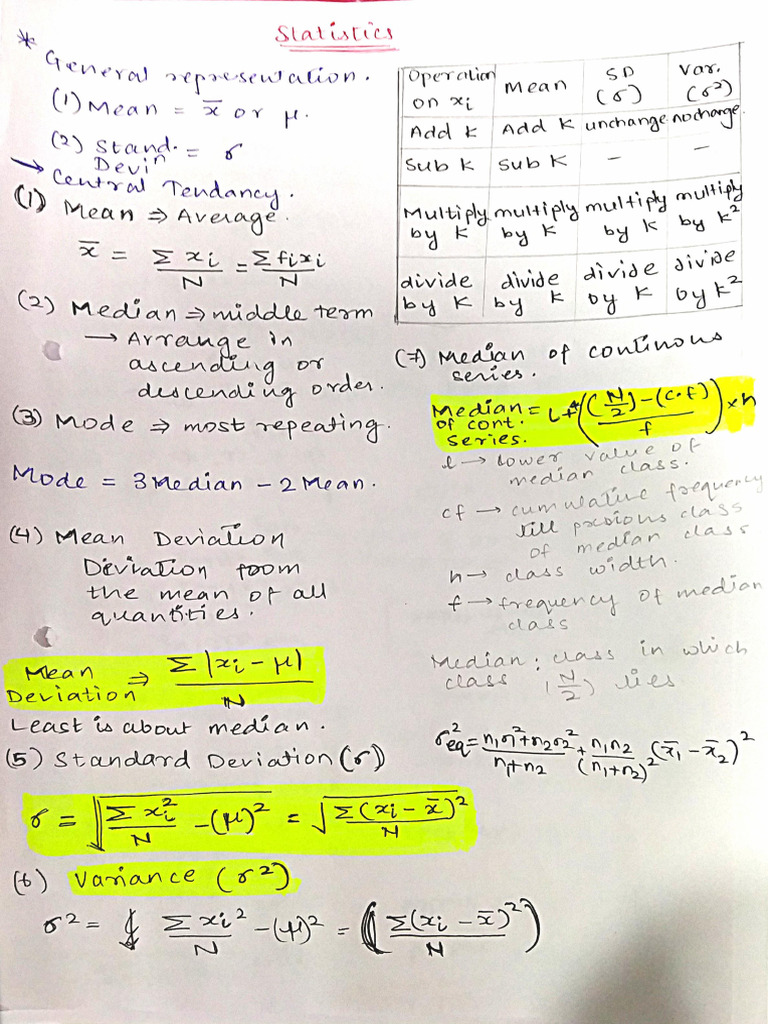 Statistics
* General representation.
(1) Mean = x̄ or μ.
(2) Stand. Deviⁿ = σ
→ Central Tendancy.
(1) Mean ⇒ Average.
x̄ = Σxi/N = Σfixi/N
(2) Median ⇒ middle term
→ Arrange in
ascending or
descending order.
(3) Mode ⇒ most repeating.
Mode = 3 Median − 2 Mean.
(4) Mean Deviation
Deviation from
the mean of all
quantities.
Mean Deviation ⇒ Σ|xi − μ|/N
Least is about median.
(5) Standard Deviation (σ)
σ = √(Σxi²/N − (μ)²) = √(Σ(xi − x̄)²/N)
(6) Variance (σ²)
σ² = Σxi²/N − (μ)² = (Σ(xi − x̄)²/N)
Operation on xi | Mean | SD (σ) | Var. (σ²)
Add k | Add k | unchange | no change.
Sub k | Sub k | − | −
Multiply by k | multiply by k | multiply by k | multiply by k²
divide by k | divide by k | divide by k | divide by k²
(7) Median of continous
series.
Median of cont. series. = l + (((N/2) − (c.f))/f) × h
l → lower value of
median class.
cf → cumulative frequency
till previous class
of median class
h → class width.
f → frequency of median
class
Median : class in which
class (N/2) lies
σ²eq = (n₁σ₁² + n₂σ₂²)/(n₁+n₂) + n₁n₂/(n₁+n₂)² (x̄₁ − x̄₂)²